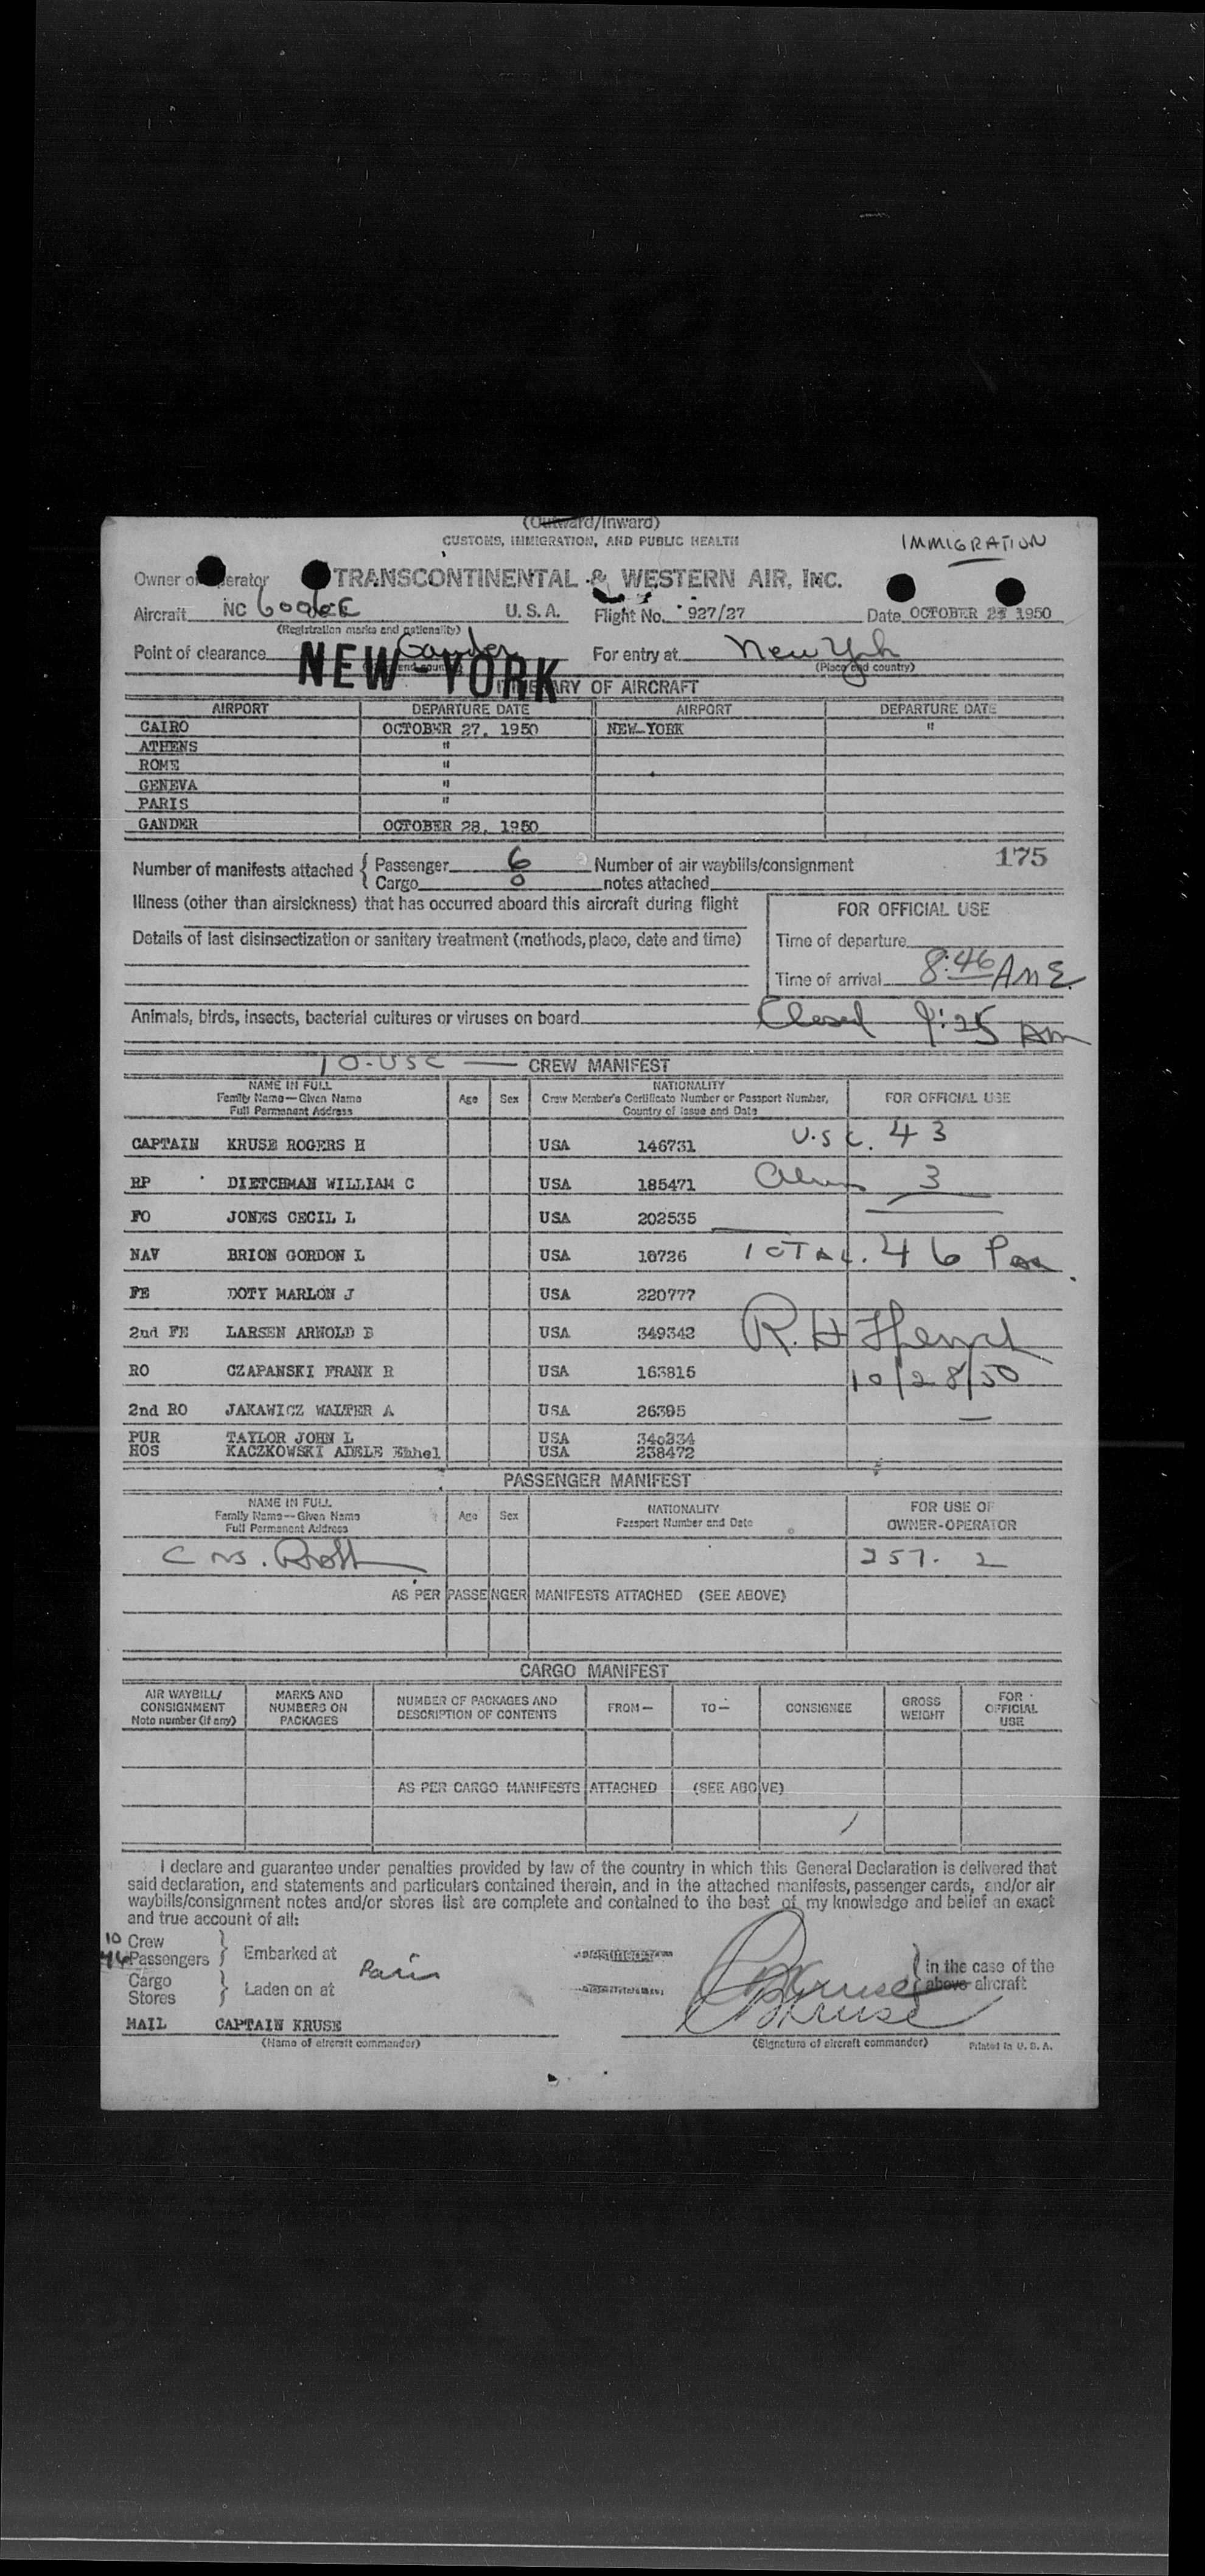 (Outward/Inward)
CUSTOMS, IMMIGRATION, AND PUBLIC HEALTH
IMMIGRATION
Owner or Operator TRANSCONTINENTAL & WESTERN AIR, INC.
Aircraft NC U.S.A. Flight No. 927/27 Date OCTOBER 1950
(Registration marks and nationality)
Point of clearance Gander For entry at New York
NEW-YORK
(Place and country)
ITINERARY OF AIRCRAFT
AIRPORT DEPARTURE DATE AIRPORT DEPARTURE DATE
CAIRO OCTOBER 27, 1950 NEW-YORK "
ATHENS "
ROME "
GENEVA "
PARIS "
GANDER OCTOBER 28, 1950
175
Number of manifests attached { Passenger 6 Number of air waybills/consignment
Cargo 0 notes attached
Illness (other than airsickness) that has occurred aboard this aircraft during flight
FOR OFFICIAL USE
Details of last disinsectization or sanitary treatment (methods, place, date and time)
Time of departure
Time of arrival 8:46 AM E.
Animals, birds, insects, bacterial cultures or viruses on board
Closed 9:25 AM
10-USC — CREW MANIFEST
NAME IN FULL
Family Name—Given Name
Full Permanent Address
Age Sex
NATIONALITY
Crew Member's Certificate Number or Passport Number,
Country of Issue and Date
FOR OFFICIAL USE
CAPTAIN KRUSE ROGERS H USA 146731 U.S.C. 43
RP DIETCHMAN WILLIAM C USA 185471 Aliens 3
FO JONES CECIL L USA 202535
NAV BRION GORDON L USA 10726 TOTAL. 46 Pass.
FE DOTY MARLON J USA 220777
2nd FE LARSEN ARNOLD B USA 349342 R. H
RO CZAPANSKI FRANK R USA 163815 10/28/50
2nd RO JAKAWICZ WALTER A USA 26395
PUR TAYLOR JOHN L USA 340334
HOS KACZKOWSKI ADELE Ethel USA 238472
PASSENGER MANIFEST
NAME IN FULL
Family Name—Given Name
Full Permanent Address
Age Sex
NATIONALITY
Passport Number and Date
FOR USE OF
OWNER-OPERATOR
257. 2
AS PER PASSENGER MANIFESTS ATTACHED (SEE ABOVE)
CARGO MANIFEST
AIR WAYBILL/
CONSIGNMENT
Note number (if any)
MARKS AND
NUMBERS ON
PACKAGES
NUMBER OF PACKAGES AND
DESCRIPTION OF CONTENTS
FROM—
TO—
CONSIGNEE
GROSS
WEIGHT
FOR
OFFICIAL
USE
AS PER CARGO MANIFESTS ATTACHED (SEE ABOVE)
I declare and guarantee under penalties provided by law of the country in which this General Declaration is delivered that
said declaration, and statements and particulars contained therein, and in the attached manifests, passenger cards, and/or air
waybills/consignment notes and/or stores list are complete and contained to the best of my knowledge and belief an exact
and true account of all:
10 Crew
46 Passengers } Embarked at Paris
Cargo
Stores } Laden on at
} in the case of the
above aircraft
Kruse
Kruse
MAIL CAPTAIN KRUSE
(Name of aircraft commander) (Signature of aircraft commander) Printed in U.S.A.